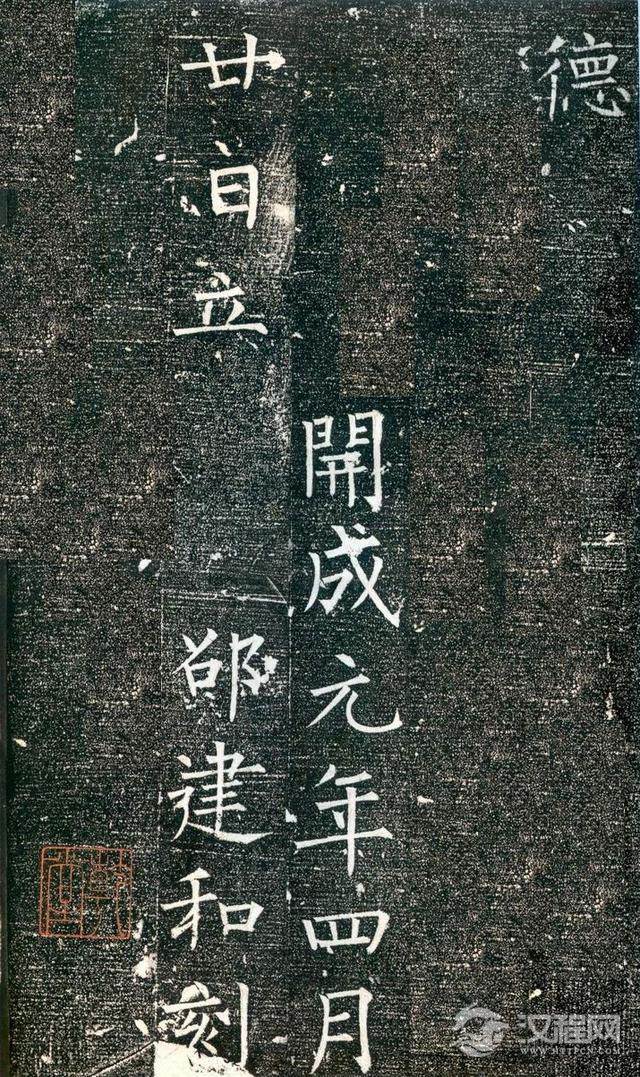 德
開成元年四月
廿日立 邵建和刻
汉程网